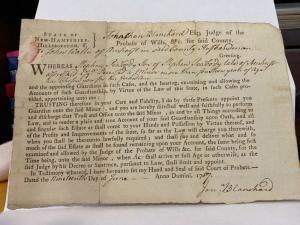 STATE of
NEW-HAMPSHIRE,
HILLSBOROUGH,
Jonathan Blanchard Esq; Judge of the
Probate of Wills, &c. for said County,
To John Wallis of Amherst in said County Husbandman
WHEREAS Stephen Peabody Son of Stephen Peabody late of Amherst
a Minor more than fourteen years of age
and the appointing Guardians in such Case, and the hearing, examining and allowing the
Accounts of such Guardianship, by Virtue of the Law of this State, in such Cases pro-
vided, appertaining unto me.
TRUSTING therefore in your Care and Fidelity, I do by these Presents appoint you
Guardian unto the said Minor; and you are hereby directed well and faithfully to perform
and discharge that Trust and Office unto the said Minor, and to do all Things according to
Law, and to render a plain and true Account of your said Guardianship upon Oath, and all
such Estate as shall come to your Hands and Possession by Virtue thereof, and
of the Profits and Improvements of the same, so far as the Law will charge you therewith,
when you shall be thereunto lawfully required; and shall pay and deliver what and so
much of the said Estate as shall be found remaining upon your Account, the same being first
examined and allowed of by the Judge of the Probate of Wills &c. for said County, for the
Time being, unto the said Minor, when he shall arrive at full Age or otherwise, as the
said Judge by his Decree or Sentence, pursuant to Law, shall limit and appoint.
In Testimony whereof, I have hereunto set my Hand and Seal of said Court of Probate.
Dated the Nineteenth Day of June Anno Domini, 17
Jon. Blanchard